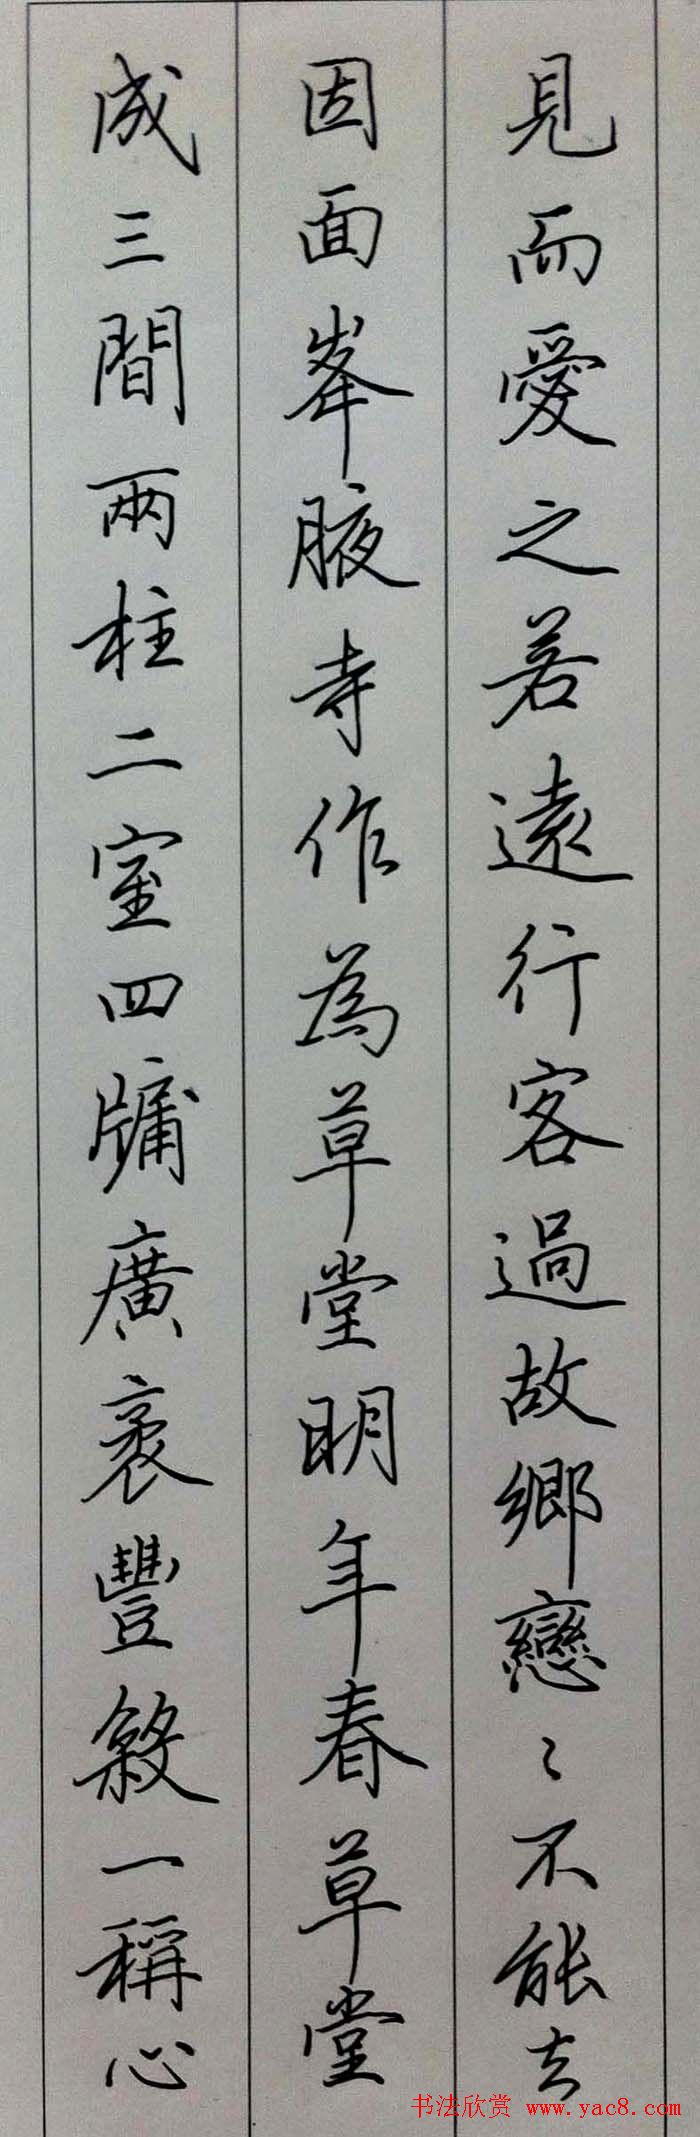 見而愛之若遠行客過故鄉戀〻不能去
因面峯腋寺作為草堂明年春草堂
成三間兩柱二室四牖廣袤豐殺一稱心
书法欣赏 www.yac8.com